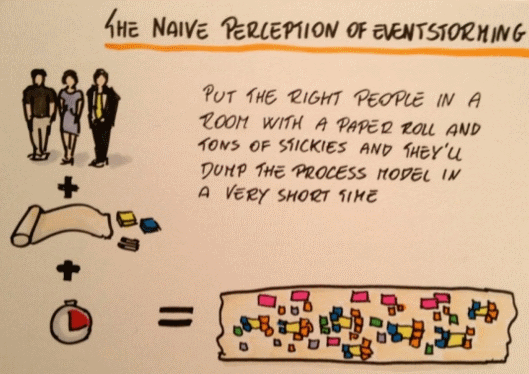 THE NAIVE PERCEPTION OF EVENTSTORMING
PUT THE RIGHT PEOPLE IN A
ROOM WITH A PAPER ROLL AND
TONS OF STICKIES AND THEY'LL
DUMP THE PROCESS MODEL IN
A VERY SHORT TIME
+
+
=